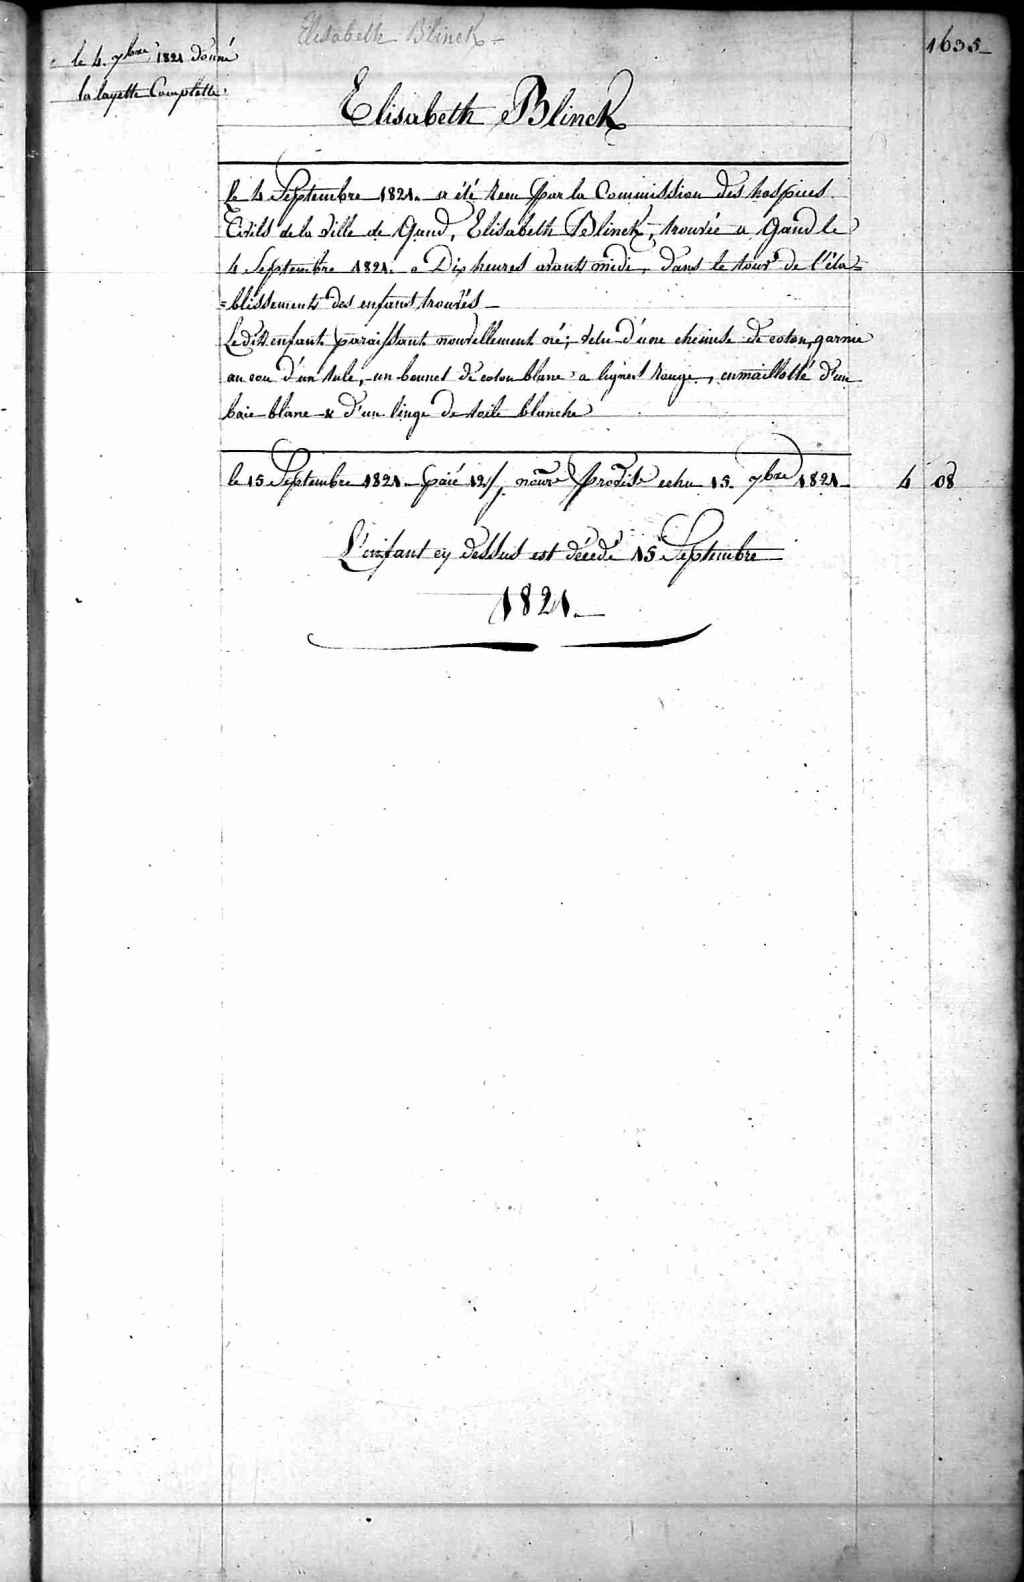 Elisabeth Blinck
1635
le 4. 7bre 1821 donné
la layette Complette
Elisabeth Blinck
Le 4 Septembre 1821. a été remi par la Commission des hospices
Civils de la ville de Gand, Elisabeth Blinck, trouvée a Gand le
4 Septembre 1821. a Dix heures avant midi, dans le tour de l'éta=
=blissement des enfans trouvés
Ledit enfant paraissant nouvellement né; vetu d'une chemise de coton, garnie
au cou d'un tule, un bonnet de coton blanc a lignes rouge, enmaillotté d'un
baie blanc & d'un linge de toile blanche
le 15 Septembre 1821 paié 12/j nourre Provise echu 15. 7bre 1821 4 08
L'enfant cy dessus est décédé 15 Septembre
1821.